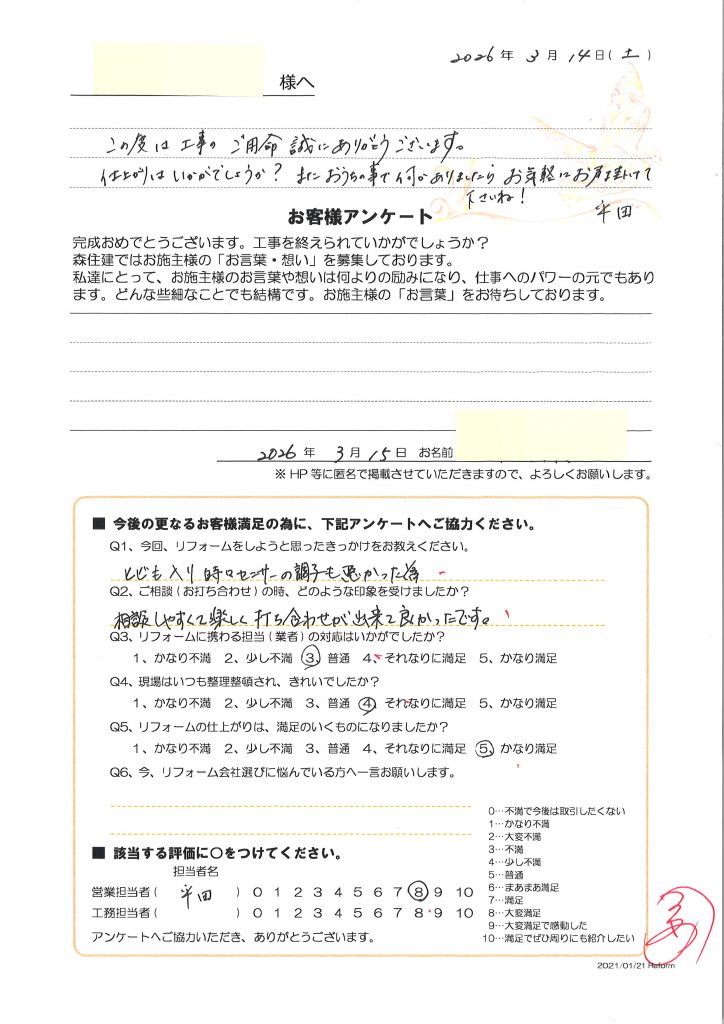 2026年 3月 14日(土)
様へ
この度は工事のご用命 誠にありがとうございます。
仕上がりはいかがでしょうか? またおうちの事で何かありましたらお気軽にお声掛けて
下さいね!
平田
お客様アンケート
完成おめでとうございます。工事を終えられていかがでしょうか?
森住建ではお施主様の「お言葉・想い」を募集しております。
私達にとって、お施主様のお言葉や想いは何よりの励みになり、仕事へのパワーの元でもあり
ます。どんな些細なことでも結構です。お施主様の「お言葉」をお待ちしております。
2026年 3月 15日 お名前
※HP等に匿名で掲載させていただきますので、よろしくお願いします。
■ 今後の更なるお客様満足の為に、下記アンケートへご協力ください。
Q1、今回、リフォームをしようと思ったきっかけをお教えください。
センサーの調子も悪かった為
Q2、ご相談(お打ち合わせ)の時、どのような印象を受けましたか?
相談しやすくて楽しく打ち合わせが出来て良かったです。
Q3、リフォームに携わる担当(業者)の対応はいかがでしたか?
1、かなり不満 2、少し不満 3、普通 4、それなりに満足 5、かなり満足
Q4、現場はいつも整理整頓され、きれいでしたか?
1、かなり不満 2、少し不満 3、普通 4、それなりに満足 5、かなり満足
Q5、リフォームの仕上がりは、満足のいくものになりましたか?
1、かなり不満 2、少し不満 3、普通 4、それなりに満足 5、かなり満足
Q6、今、リフォーム会社選びに悩んでいる方へ一言お願いします。
■ 該当する評価に〇をつけてください。
担当者名
営業担当者( 平田 ) 0 1 2 3 4 5 6 7 8 9 10
工務担当者( ) 0 1 2 3 4 5 6 7 8 9 10
アンケートへご協力いただき、ありがとうございます。
0…不満で今後は取引したくない
1…かなり不満
2…大変不満
3…不満
4…少し不満
5…普通
6…まあまあ満足
7…満足
8…大変満足
9…大変満足で感動した
10…満足でぜひ周りにも紹介したい
2021/01/21 Reform